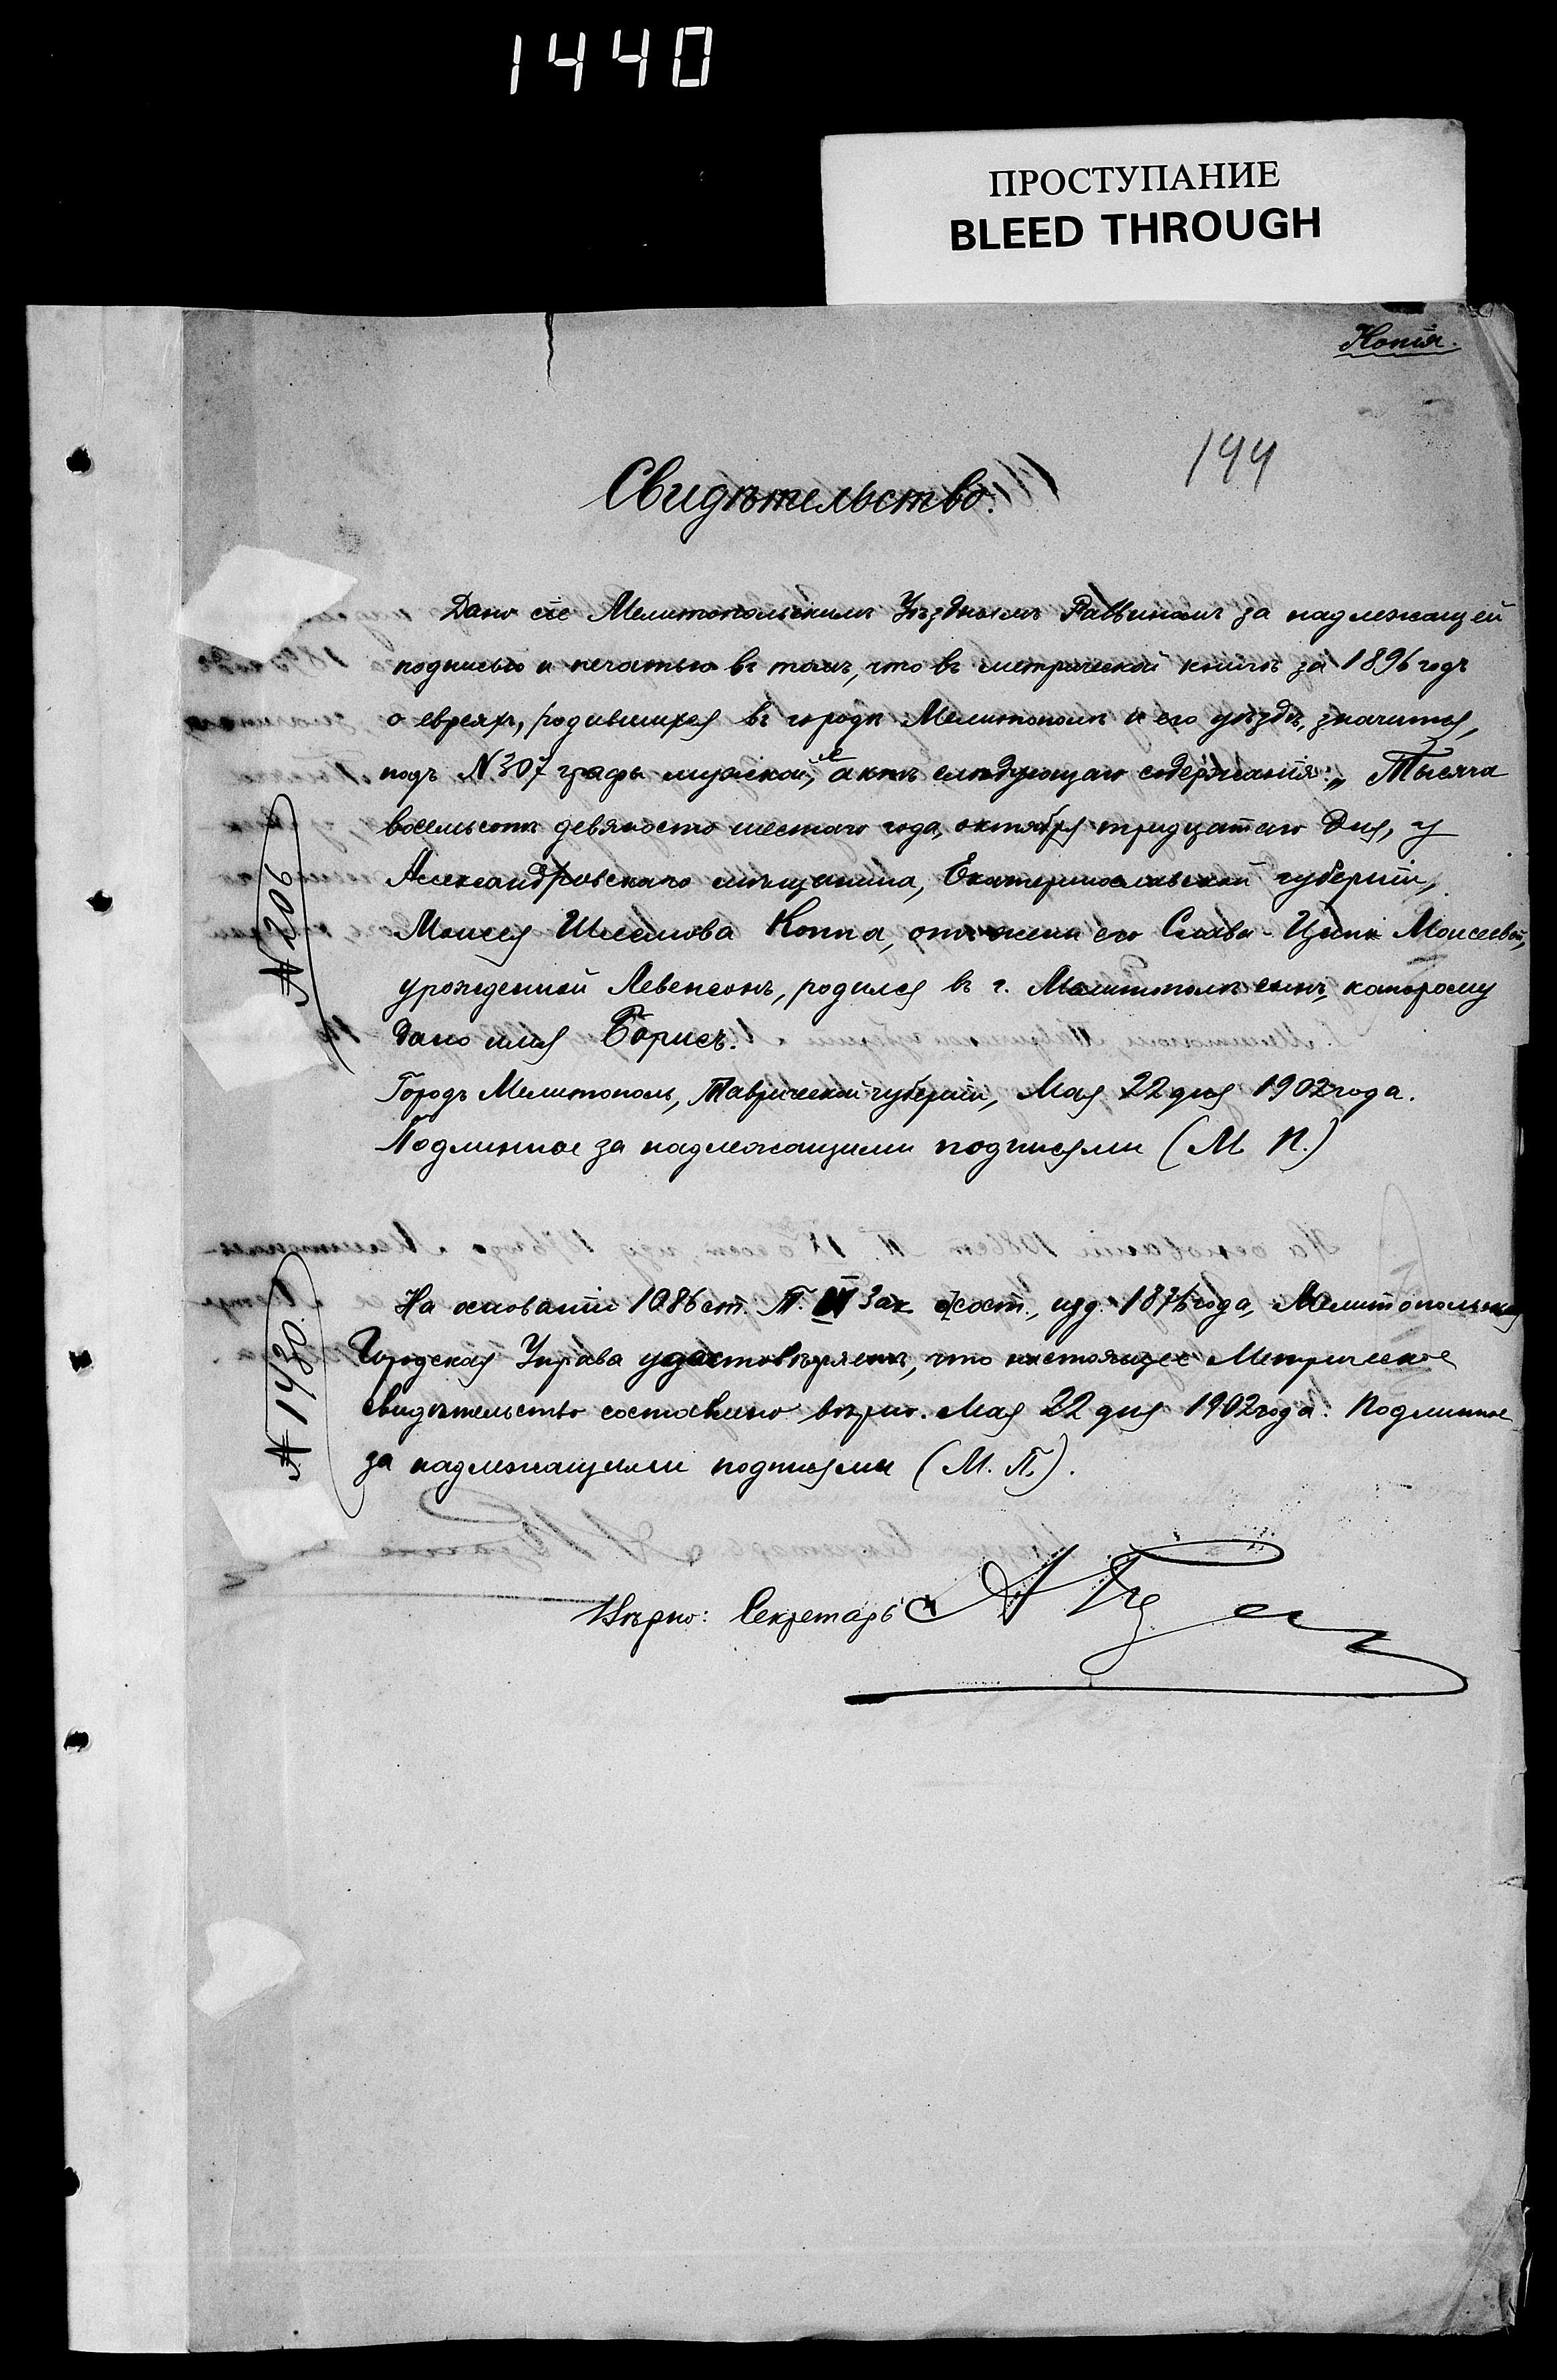 1440
ПРОСТУПАНИЕ
BLEED THROUGH
Копія.
144
Свидѣтельство.
Дано сіе Мелитопольскимъ Уѣзднымъ Раввиномъ за надлежащей
подписью и печатью въ томъ, что въ метрической книгѣ за 1896 годъ
о евреяхъ, родившихся въ городѣ Мелитополѣ и его уѣздѣ, значится,
подъ №307 графы мужской, актъ слѣдующаго содержанія: „Тысяча
восемьсотъ девяносто шестаго года, октября тридцатаго дня, у
Александровскаго мѣщанина, Екатеринославской губерніи,
Моисея Шлемова Коппа, отъ жены его Славы-Ципы Моисеевой,
урожденной Левенсонъ, родился въ г. Мелитополѣ сынъ, которому
дано имя Борисъ.
Городъ Мелитополь, Таврической губерніи, Мая 22 дня 1902 года.
Подлинное за надлежащими подписями (М. П.)
№ 206
На основаніи 1086 ст. Т. IX Зак о сост., изд. 1876 года, Мелитопольская
Городская Управа удостовѣряетъ, что настоящее Метрическое
свидѣтельство составлено вѣрно. Мая 22 дня 1902 года. Подлинное
за надлежащими подписями (М. П.).
№ 1430.
Вѣрно: Секретарь